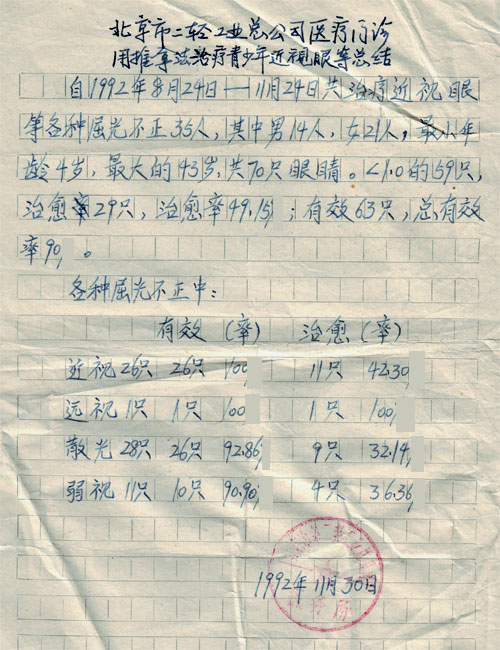 北京市二轻工业总公司医疗门诊
用推拿法治疗青少年近视眼等总结
自1992年8月24日—11月24日共治疗近视眼
等各种屈光不正35人，其中男14人，女21人，最小年
龄4岁，最大的43岁，共70只眼睛。<1.0的59只，
治愈29只，治愈率49.15%；有效63只，总有效
率90%。
各种屈光不正中：
有效 (率) 治愈 (率)
近视26只 26只 100% 11只 42.30%
远视1只 1只 100% 1只 100%
散光28只 26只 92.86% 9只 32.14%
弱视11只 10只 90.90% 4只 36.36%
1992年11月30日